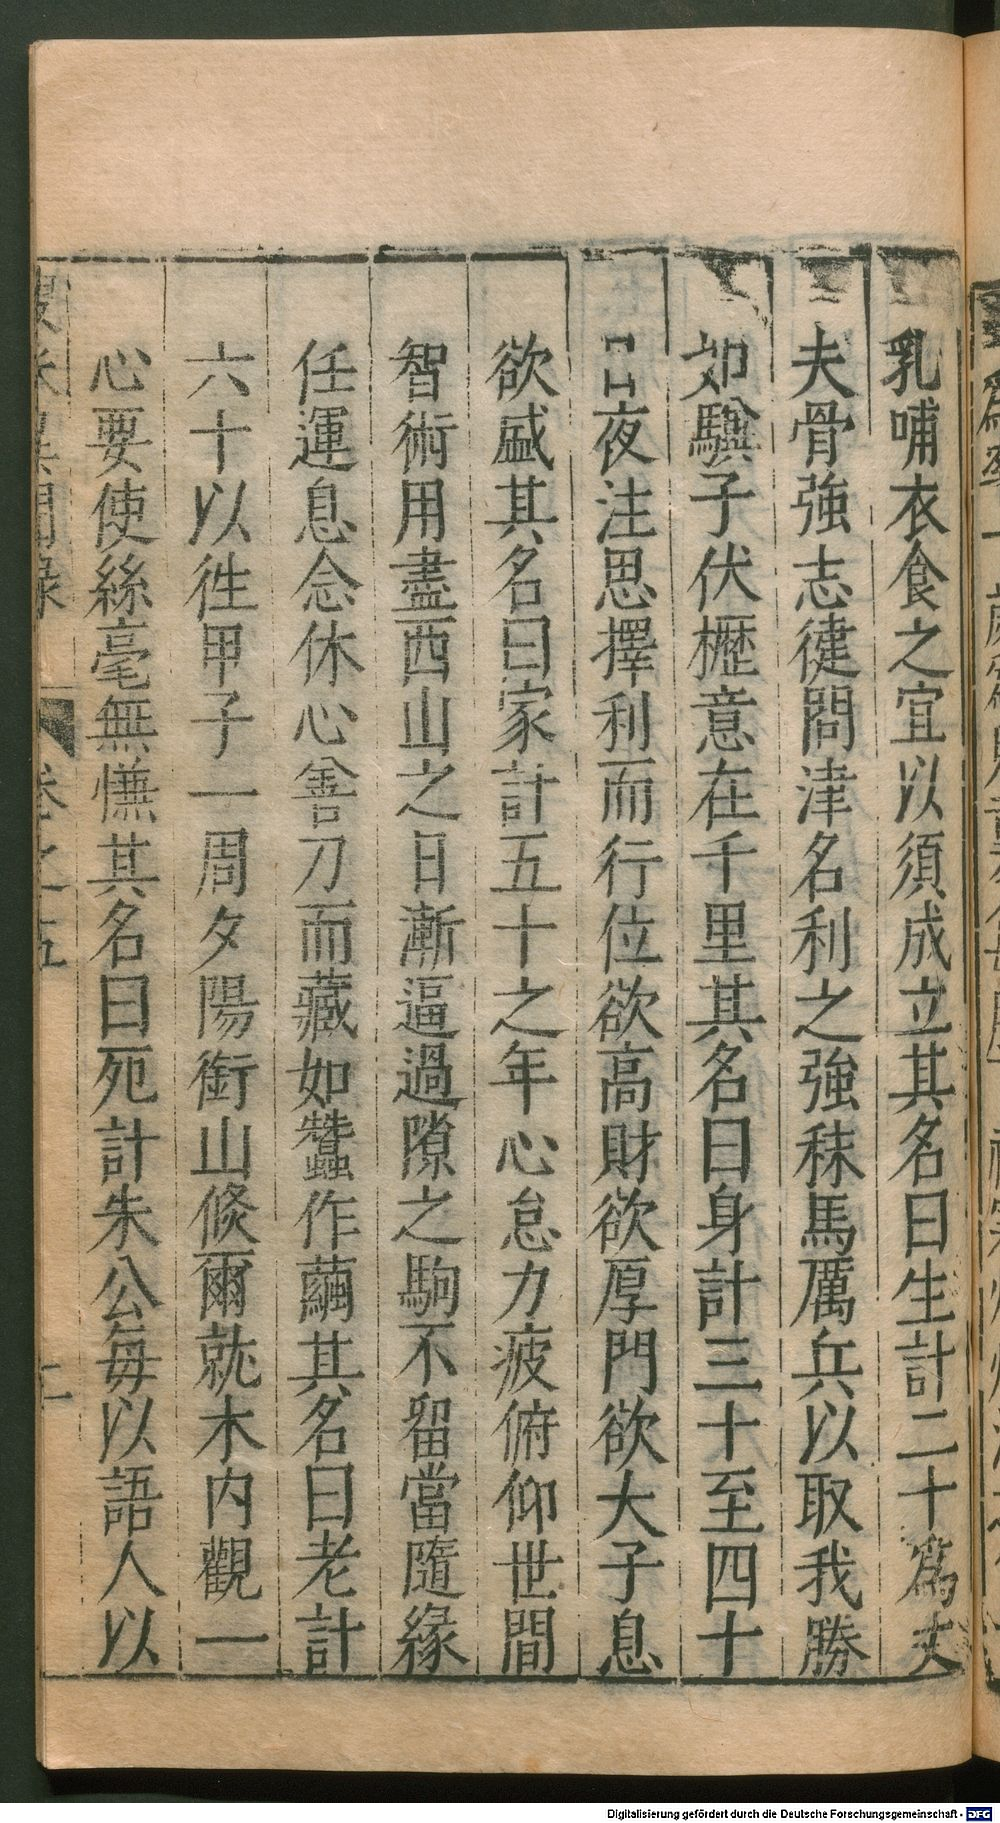 乳哺衣食之宜以須成立其名曰生計二十爲丈
夫骨強志徤問津名利之強秣馬厲兵以取我勝
如驥子伏櫪意在千里其名曰身計三十至四十
日夜注思擇利而行位欲高財欲厚門欲大子息
欲盛其名曰家計五十之年心怠力疲俯仰世間
智術用盡西山之日漸逼過隙之駒不留當隨緣
任運息念休心善刀而藏如蠶作繭其名曰老計
六十以徃甲子一周夕陽銜山倐爾就木内觀一
心要使絲毫無慊其名曰死計朱公每以語人以
異聞録 卷之五
Digitalisierung gefördert durch die Deutsche Forschungsgemeinschaft - DFG